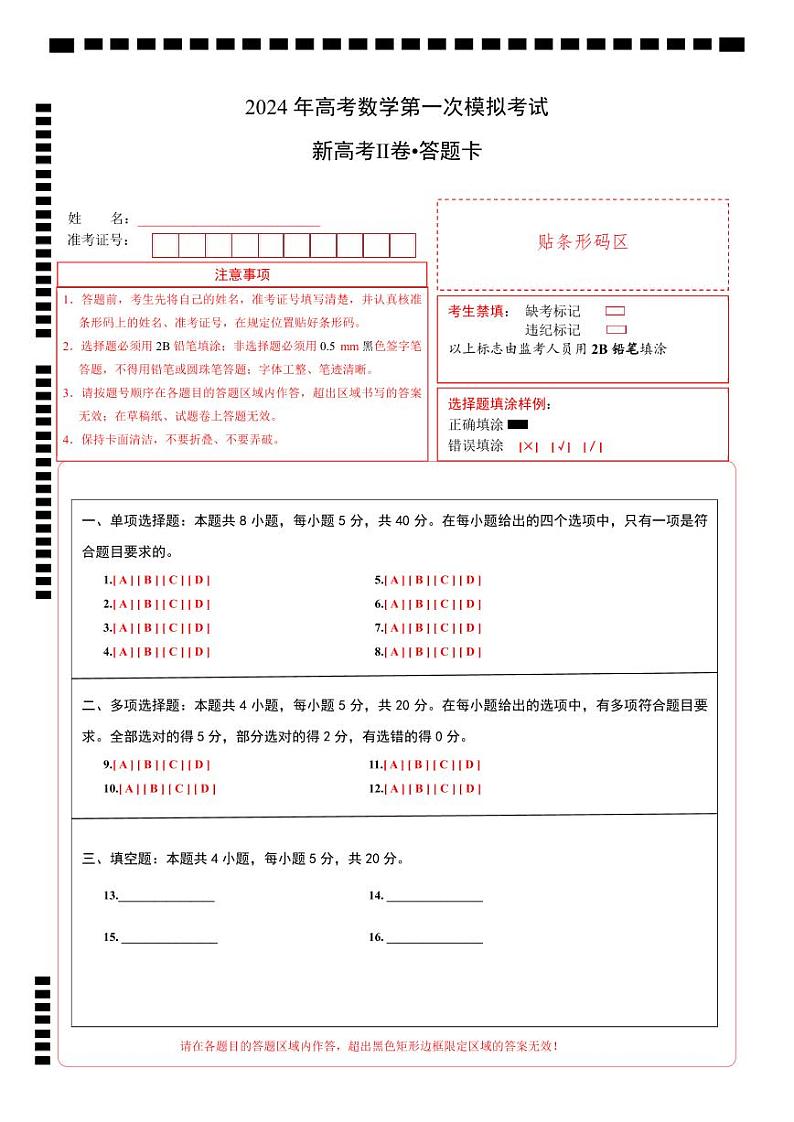 2024 年高考数学第一次模拟考试
新高考Ⅱ卷•答题卡
姓 名：
准考证号：
贴条形码区
注意事项
1．答题前，考生先将自己的姓名，准考证号填写清楚，并认真核准
条形码上的姓名、准考证号，在规定位置贴好条形码。
2．选择题必须用 2B 铅笔填涂；非选择题必须用 0.5 mm 黑色签字笔
答题，不得用铅笔或圆珠笔答题；字体工整、笔迹清晰。
3．请按题号顺序在各题目的答题区域内作答，超出区域书写的答案
无效；在草稿纸、试题卷上答题无效。
4．保持卡面清洁，不要折叠、不要弄破。
考生禁填： 缺考标记
违纪标记
以上标志由监考人员用 2B 铅笔填涂
选择题填涂样例：
正确填涂
错误填涂 [×] [√] [/]
一、单项选择题：本题共 8 小题，每小题 5 分，共 40 分。在每小题给出的四个选项中，只有一项是符
合题目要求的。
1.[ A ] [ B ] [ C ] [ D ] 5.[ A ] [ B ] [ C ] [ D ]
2.[ A ] [ B ] [ C ] [ D ] 6.[ A ] [ B ] [ C ] [ D ]
3.[ A ] [ B ] [ C ] [ D ] 7.[ A ] [ B ] [ C ] [ D ]
4.[ A ] [ B ] [ C ] [ D ] 8.[ A ] [ B ] [ C ] [ D ]
二、多项选择题：本题共 4 小题，每小题 5 分，共 20 分。在每小题给出的选项中，有多项符合题目要
求。全部选对的得 5 分，部分选对的得 2 分，有选错的得 0 分。
9.[ A ] [ B ] [ C ] [ D ] 11.[ A ] [ B ] [ C ] [ D ]
10.[ A ] [ B ] [ C ] [ D ] 12.[ A ] [ B ] [ C ] [ D ]
三、填空题：本题共 4 小题，每小题 5 分，共 20 分。
13.______________ 14. ______________
15. ______________ 16. ______________
请在各题目的答题区域内作答，超出黑色矩形边框限定区域的答案无效！